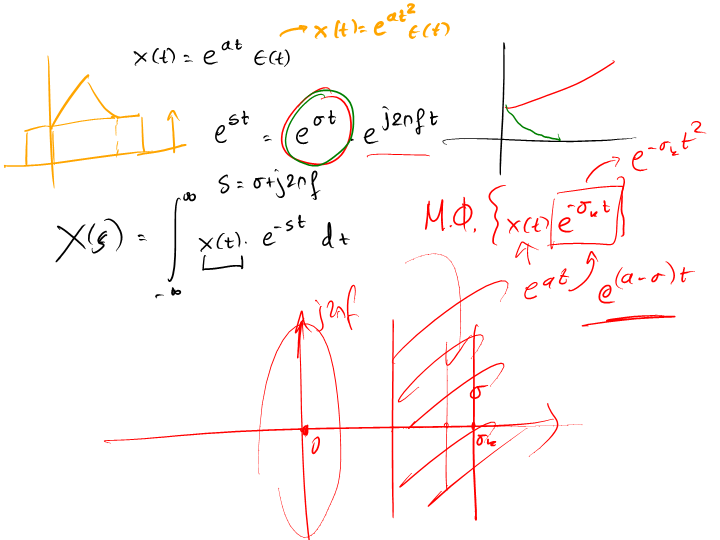 x(t) = e^{at^2} ϵ(t)
x(t) = e^{at} ϵ(t)
e^{st} = e^{σt} · e^{j2πft}
s = σ+j2πf
X(s) = ∫_{-∞}^{∞} x(t) · e^{-st} dt
e^{-σ_k t^2}
Μ.Φ. {x(t) e^{-σ_k t}}
e^{at}
e^{(a-σ)t}
j2πf
σ
0
σ_k